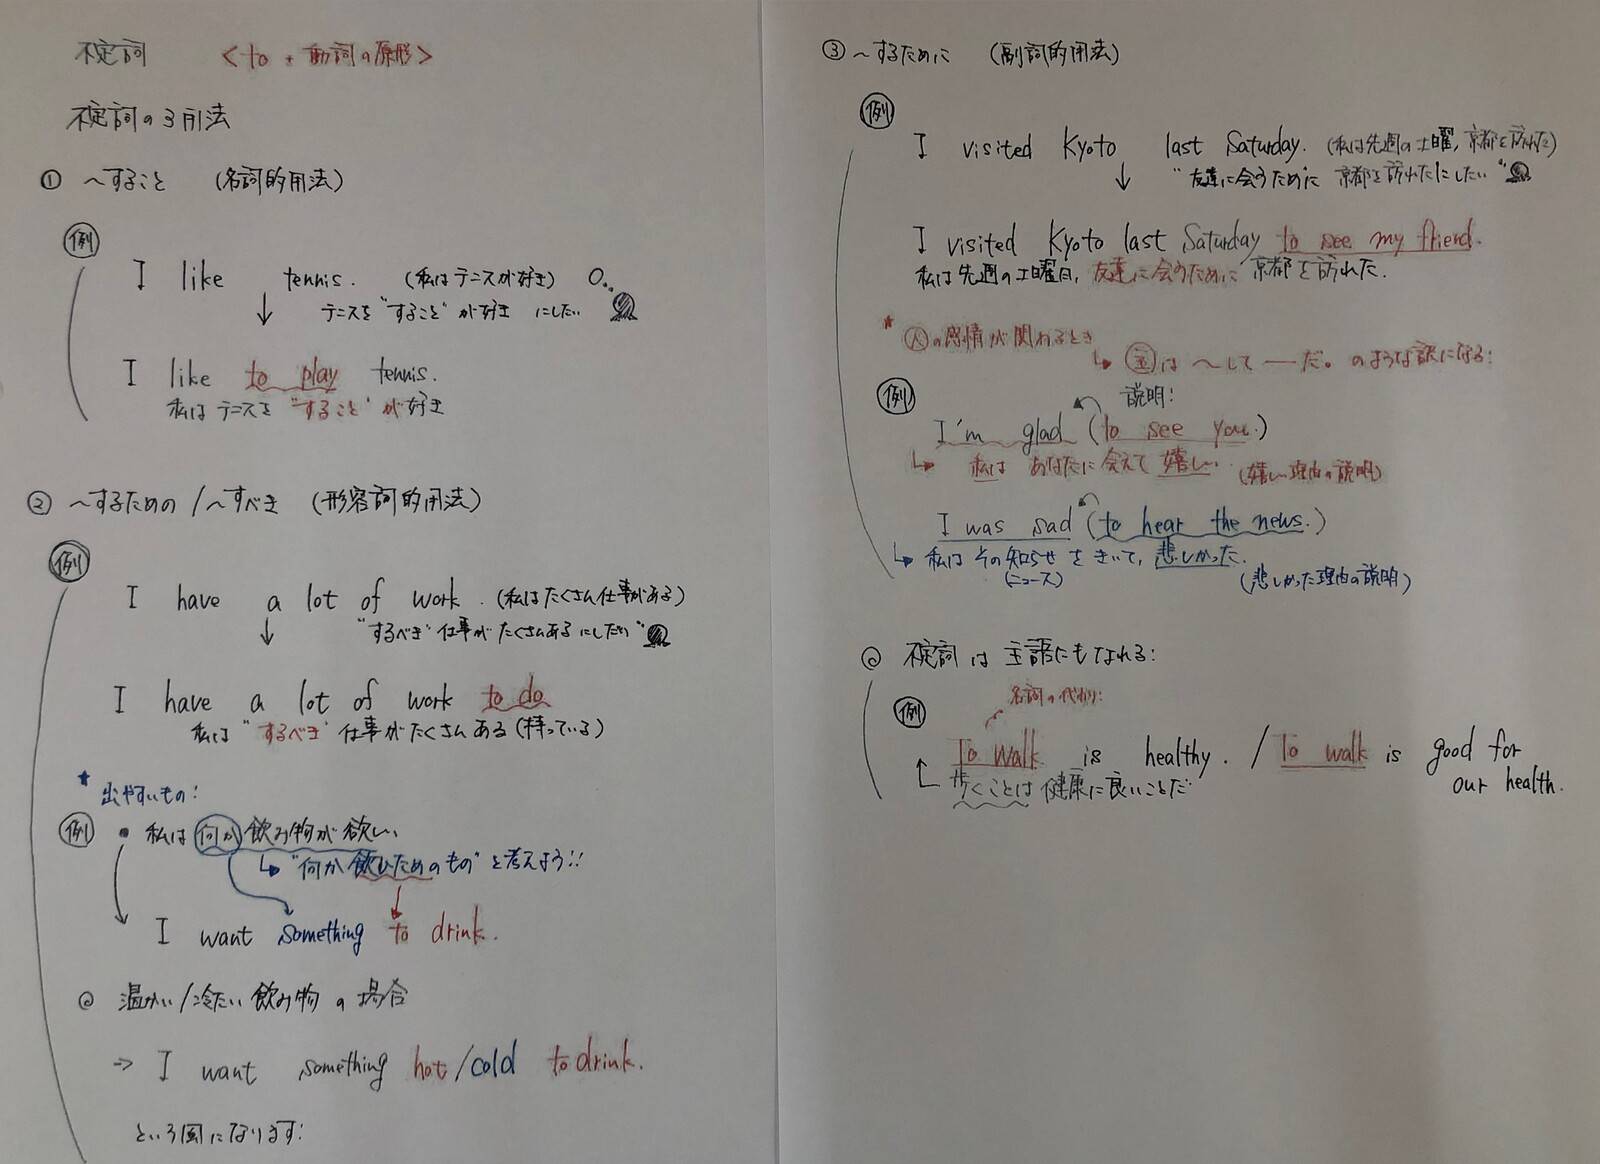 不定詞 <to + 動詞の原形>
不定詞の3用法
① ~すること (名詞的用法)
例
I like tennis. (私はテニスが好き)
↓ テニスを"すること"が好き にしたい
I like to play tennis.
私はテニスを"すること"が好き
② ~するための/~すべき (形容詞的用法)
例
I have a lot of work. (私はたくさん仕事がある)
↓ "するべき"仕事がたくさんあるにしたい"
I have a lot of work to do
私は"するべき"仕事がたくさんある(持っている)
★ 出やすいもの!
例 • 私は何か飲み物が欲しい
↳ "何か飲むためのもの"と考えよう!!
I want something to drink.
◎ 温かい/冷たい飲み物の場合
⇒ I want something hot/cold to drink.
という風になります!
③ ~するために (副詞的用法)
例
I visited Kyoto last Saturday. (私は先週の土曜,京都を訪れた)
↓ "友達に会うために京都を訪れたにしたい"
I visited Kyoto last Saturday to see my friend.
私は先週の土曜日,友達に会うために京都を訪れた.
★ 人の感情が関わるとき
↳ 主は~して―だ。のような訳になる!
例 説明!
I'm glad (to see you.)
↳ 私はあなたに会えて嬉しい. (嬉しい理由の説明)
I was sad (to hear the news.)
↳ 私はその知らせをきいて,悲しかった.
(ニュース) (悲しかった理由の説明)
◎ 不定詞は主語にもなれる!
名詞の代わり!
例
To walk is healthy. / To walk is good for
our health.
歩くことは健康に良いことだ